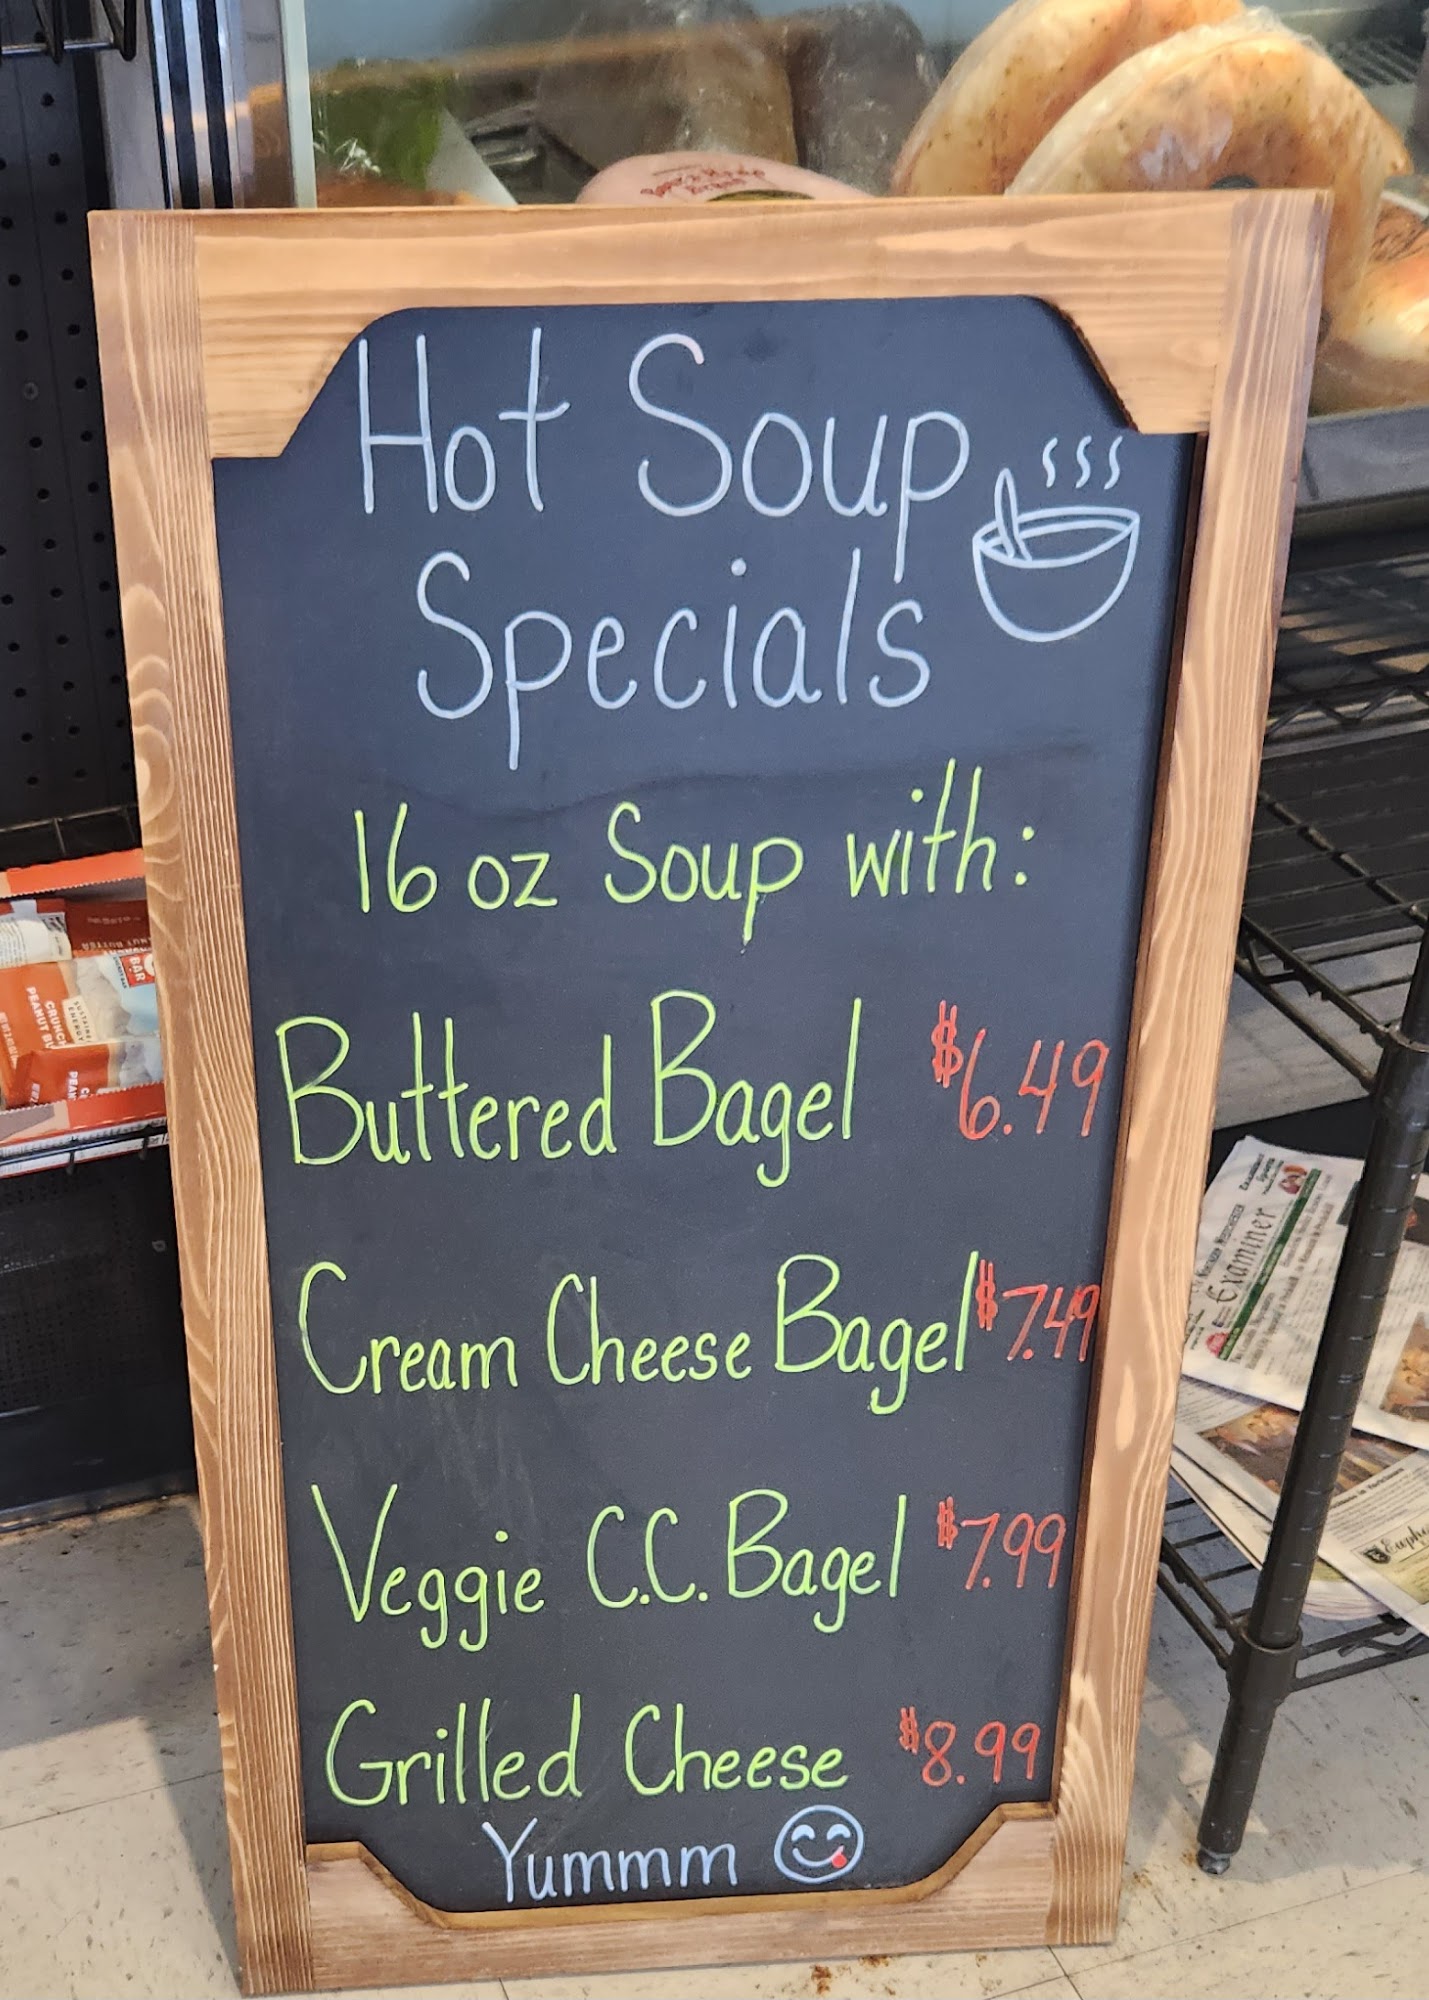 Hot Soup
Specials
16 oz Soup with:
Buttered Bagel $6.49
Cream Cheese Bagel $7.49
Veggie C.C. Bagel $7.99
Grilled Cheese $8.99
Yummm
BAR
CRUNCHY
PEANUT BU
Examiner